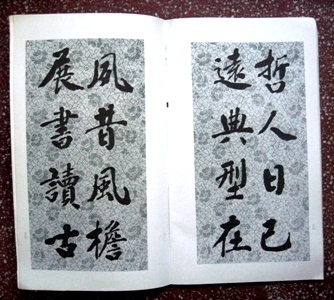 哲人日已
遠典型在
夙昔風檐
展書讀古